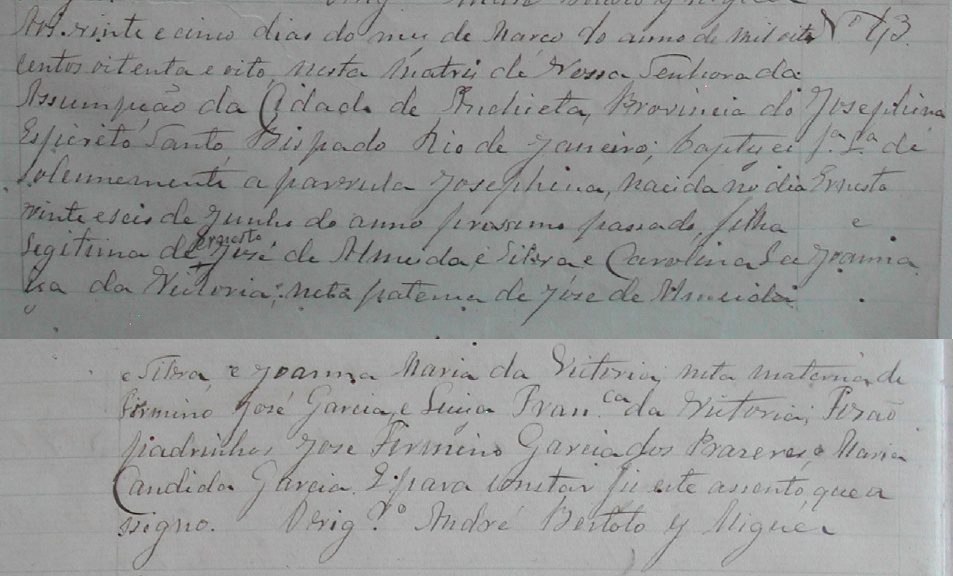 Aos vinte e cinco dias do mez de Março do anno de mil oito
centos oitenta e oito, nesta Matriz de Nossa Senhora da
Assumpção da Cidade de Anchieta, Provincia do
Espirito Santo, Bispado Rio de Janeiro; baptizei
solennemente a parvula Josephina, nacida no dia
vinte e seis de Junho do anno proximo passado, filha
legitima de Ernesto José de Almeida e Silva e Carolina Lu
iza da Victoria; neta paterna de José de Almeida
Nº 43.
Josephina
f.ª L.ª de
Ernesto
e
Joanna
e Silva e Joanna Maria da Victoria, neta materna de
Firmino José Garcia, e Luiza Fran.ca da Victoria; Forão
padrinhos José Firmino Garcia dos Prazeres, e Maria
Candida Garcia. E para constar fiz este assento que a
ssigno. Vrig.º André Bertoto y Miguez